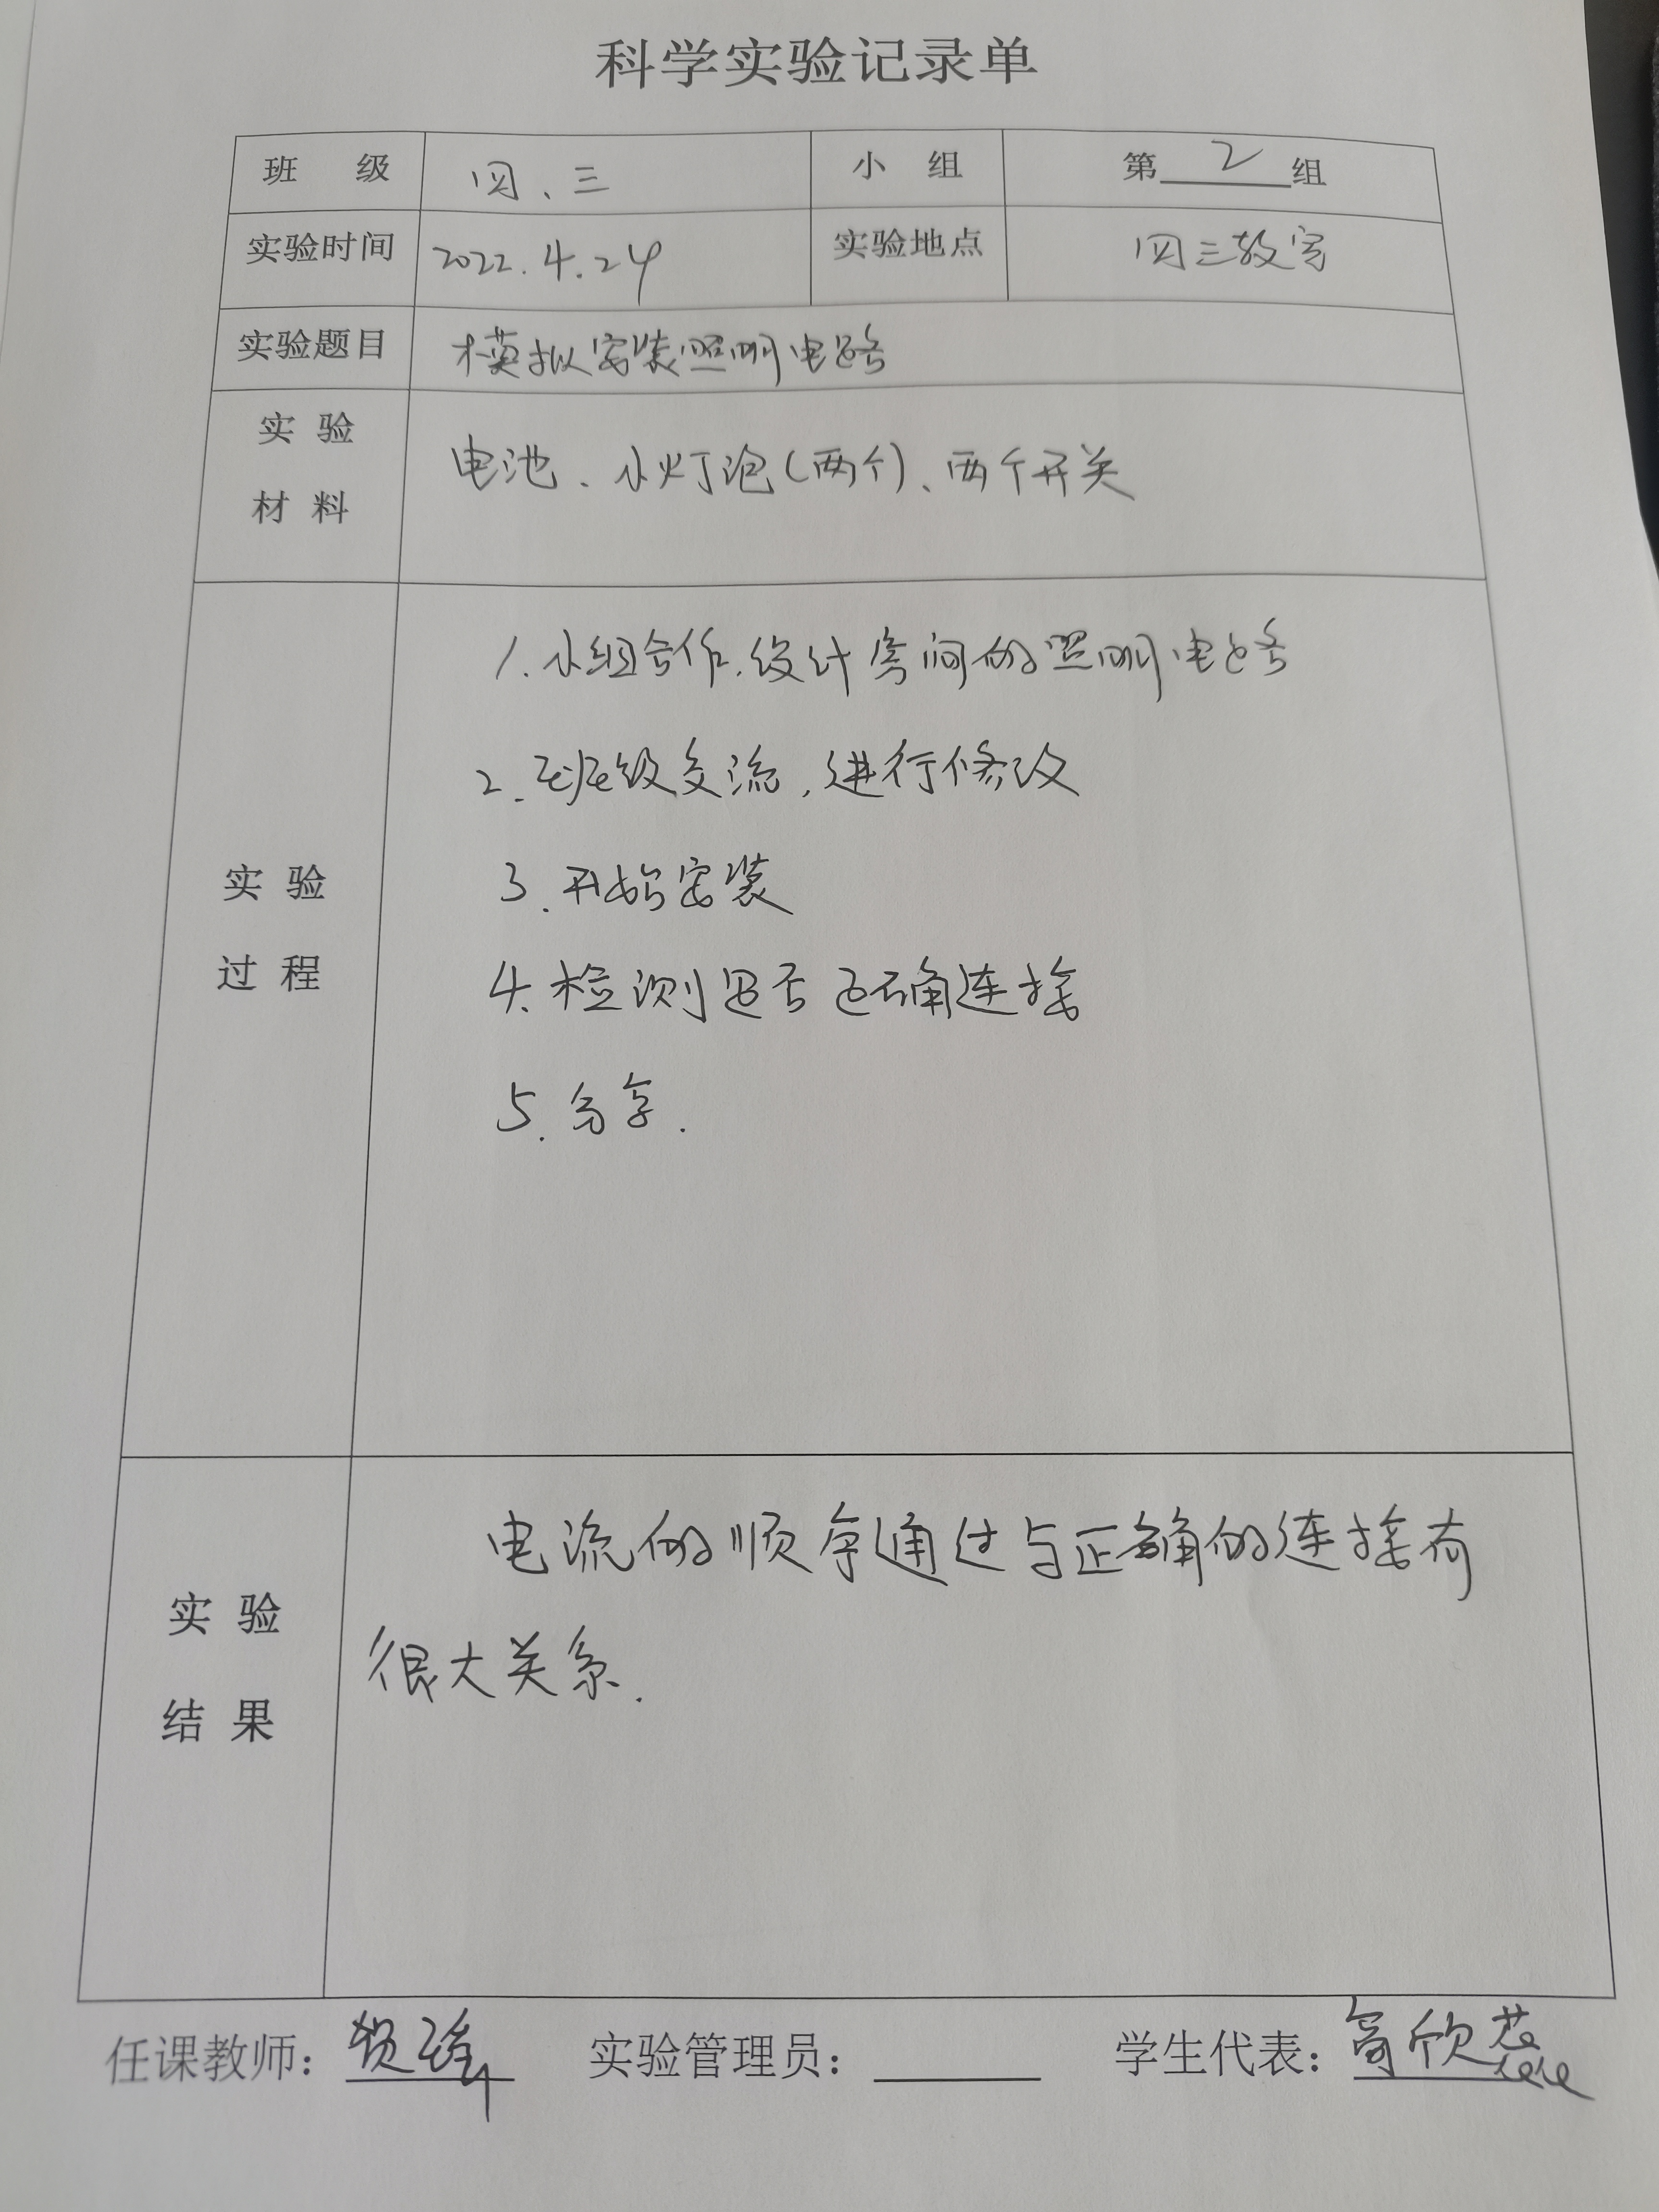 科学实验记录单
班 级 四、三 小 组 第 2 组
实验时间 2022.4.24 实验地点 四三教室
实验题目 模拟安装照明电路
实 验
材 料
电池、小灯泡(两个)、两个开关
实 验
过 程
1.小组合作,设计房间的照明电路
2.班级交流,进行修改
3.开始安装
4.检测是否正确连接
5.分享.
实 验
结 果
电流的顺序通过与正确的连接有
很大关系.
任课教师: 实验管理员: 学生代表: